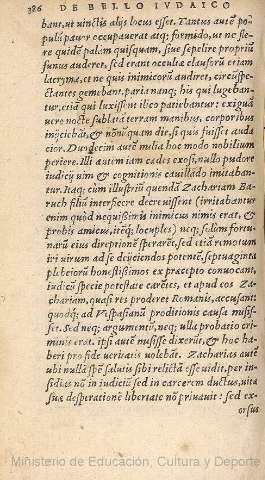 386 DE BELLO IVDAICO
bant, ut uinctis alijs locus esset. Tantus autē po=
pulũ pauor occupauerat atq; formido, ut nec fle=
re quidē palam quisquam, siue sepelire propriũ
funus auderet, sed erant occultæ clausorũ etiam
lacrymæ, et ne quis inimicorũ audiret, circũspe=
ctantes gemebant. paria nanq; his qui lugeban=
tur, etiā qui luxissent ilico patiebantur: exigua
uero nocte sublata terram manibus, corporibus
inijciebāt, & nōnūquam die, si quis fuisset auda
cior. Duodecim autē milia hoc modo nobilium
periere. Illi autem iam cædes exosi, nullo pudore
iudiciũ uim & cognitionis cauillādo imitaban=
tur. Itaq; cùm illustriũ quendā Zachariam Ba=
ruch filiũ interficere decreuissent (irritabantur
enim quòd nequissimis inimicus nimis erat, &
probis amicus, itēq; locuples) neq; solùm fortu=
narũ eius direptionē sperarēt, sed etiā remotum
iri uirum ad se deijciendos potentē, septuaginta
plebeiorũ honestissimos ex præcepto conuocant,
iudicũ specie potestate carētes, et apud eos Za=
chariam, quasi res proderet Romanis, accusant:
quodq; ad Vespasianũ proditionis causa misis=
set. Sed neq; argumentũ, neq; ulla probatio cri=
minis erat. ipsi autē misisse dixerũt, & hoc ha=
beri pro fide ueritatis uolebāt. Zacharias autē
ubi nullā spē salutis sibi relictā esse uidit, per in=
sidias nō in iudiciũ sed in carcerem ductus, uita
suæ desperatione libertatē nō priuauit: sed ex=
orsus
Ministerio de Educación, Cultura y Deporte